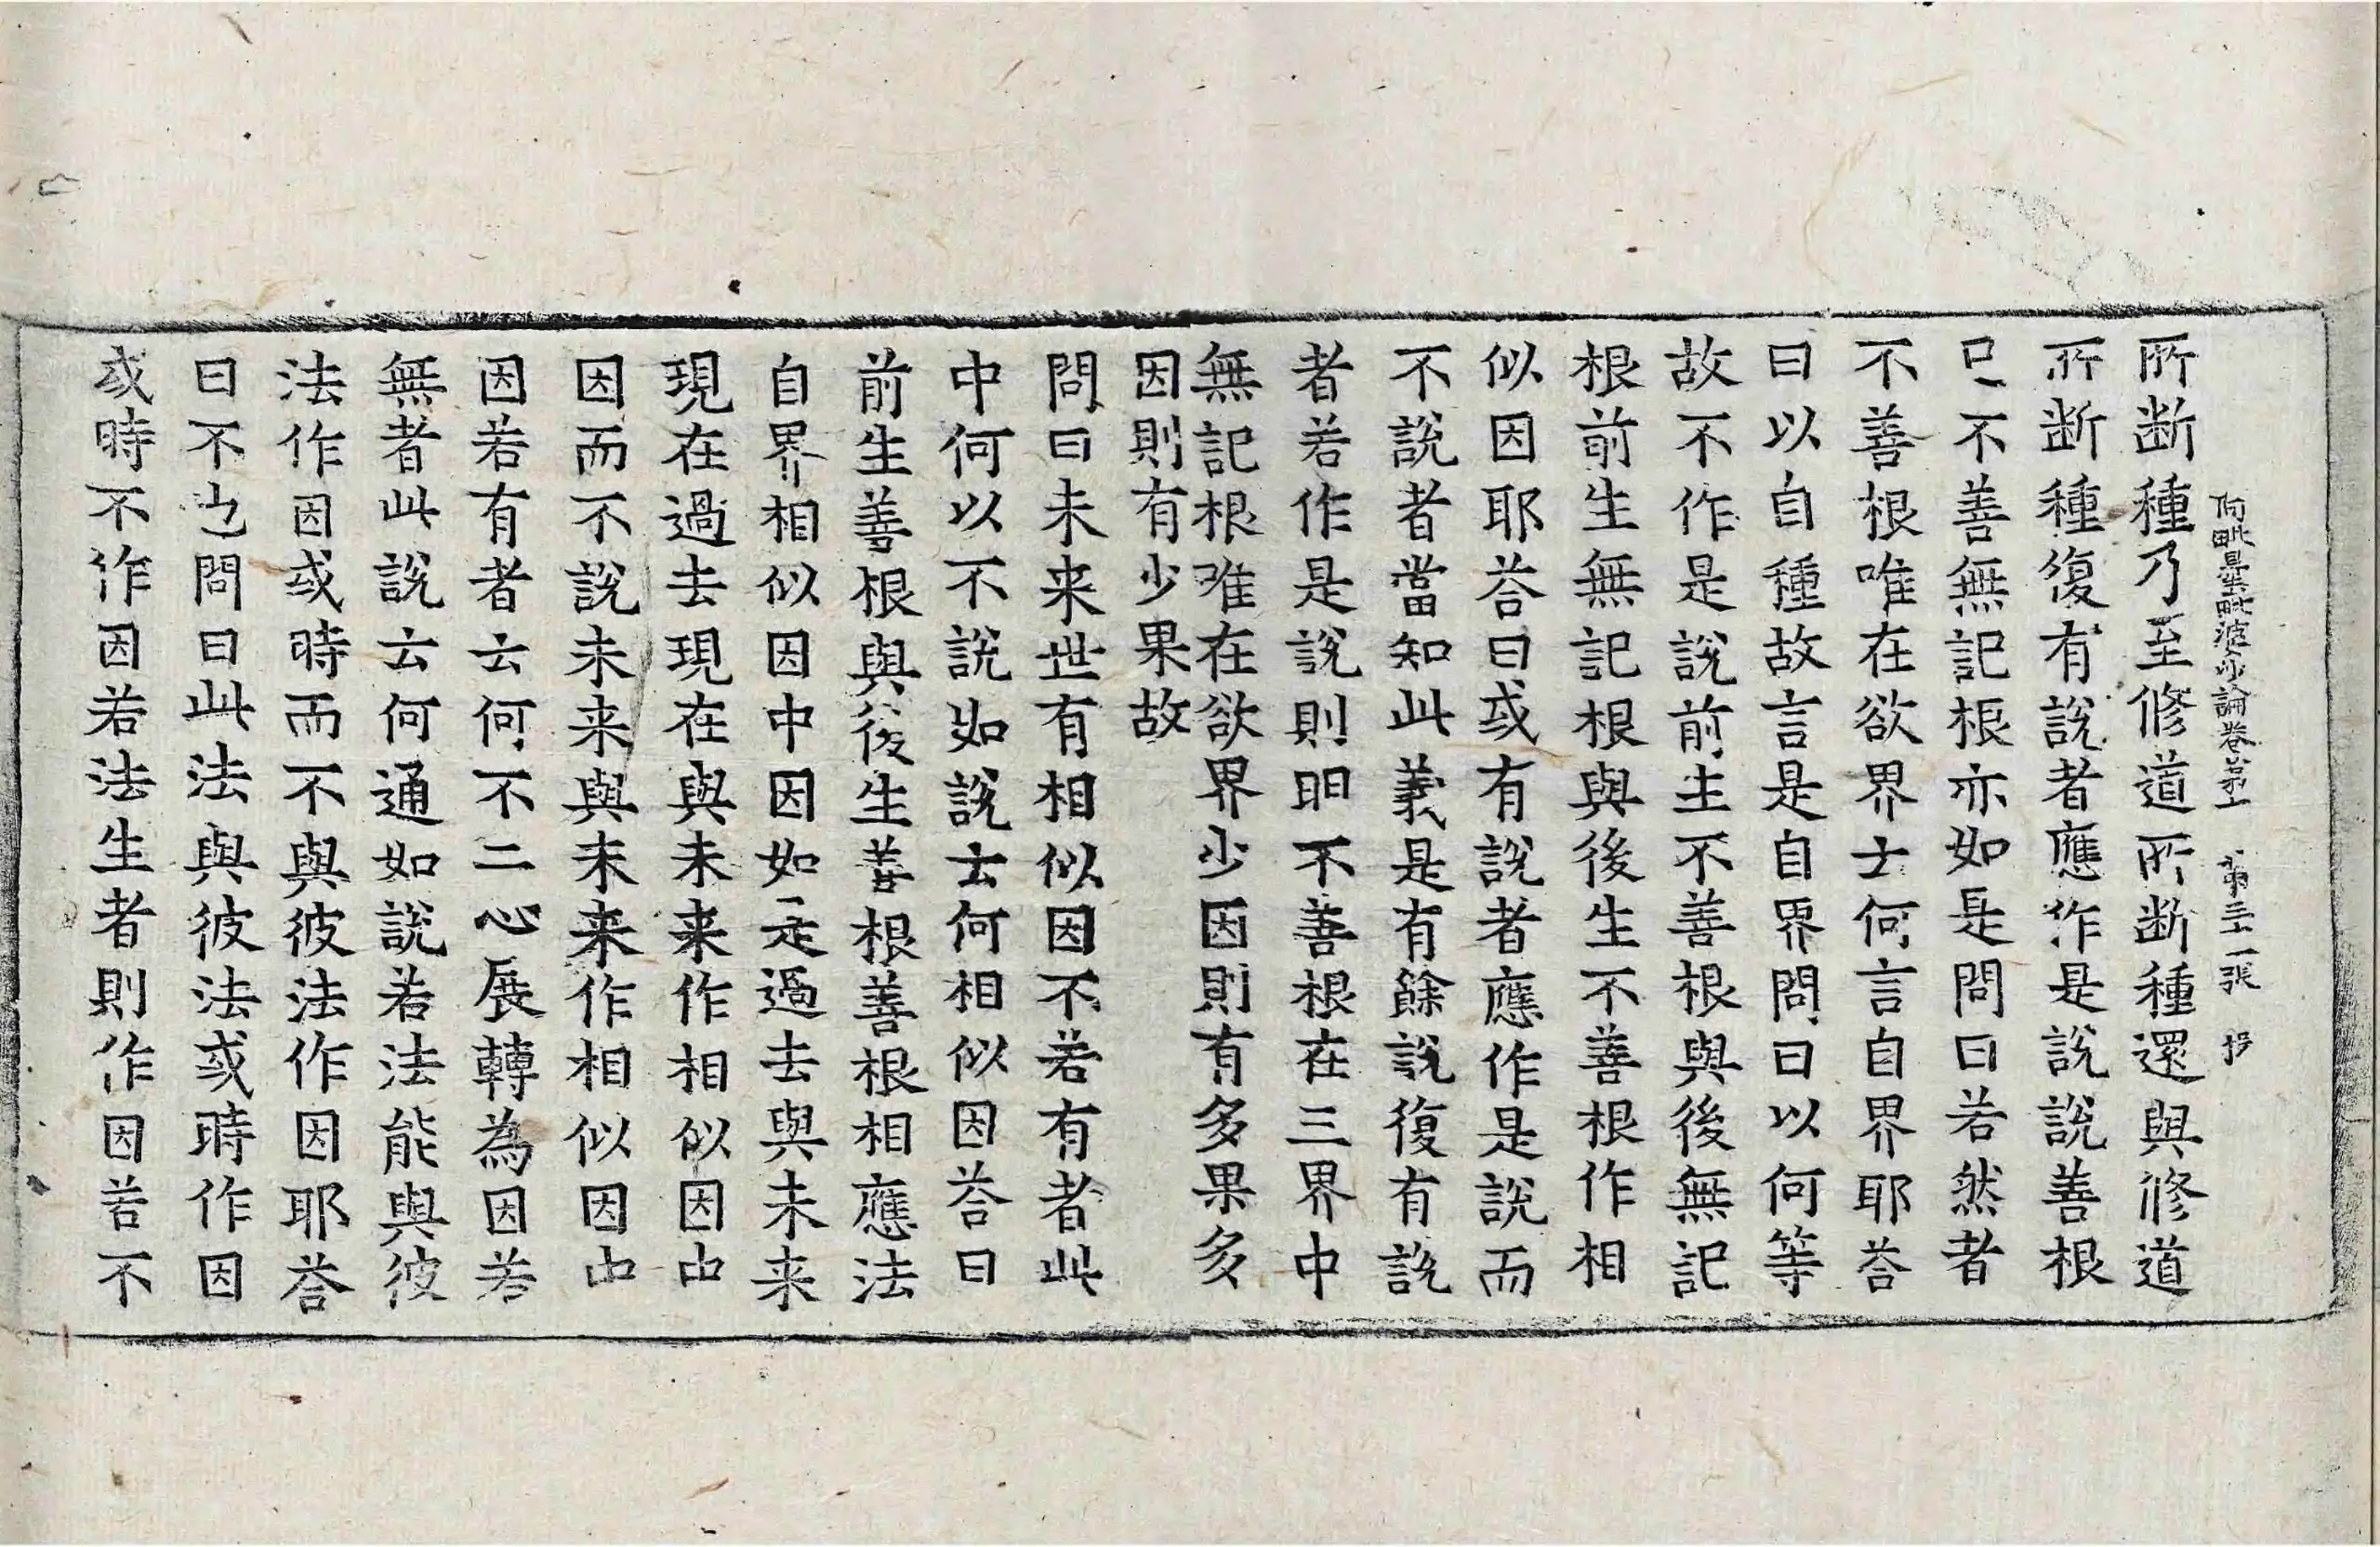 阿毗曇毗婆沙論卷第十　第三十一張　抄
所断種乃至修道所断種還與修道
所断種復有說者應作是說說善根
已不善無記根亦如是問曰若然者
不善根唯在欲界云何言自界耶荅
曰以自種故言是自界問曰以何等
故不作是說前生不善根與後無記
根前生無記根與後生不善根作相
似因耶荅曰或有說者應作是說而
不說者當知此義是有餘說復有說
者若作是說則明不善根在三界中
無記根唯在欲界少因則有多果多
因則有少果故
問曰未来世有相似因不若有者此
中何以不說如說云何相似因荅曰
前生善根與後生善根善根相應法
自界相似因中因如是過去與未来
現在過去現在與未来作相似因中
因而不說未来與未来作相似因中
因若有者云何不二心展轉為因若
無者此說云何通如說若法能與彼
法作因或時而不與彼法作因耶荅
曰不也問曰此法與彼法或時作因
或時不作因若法生者則作因若不